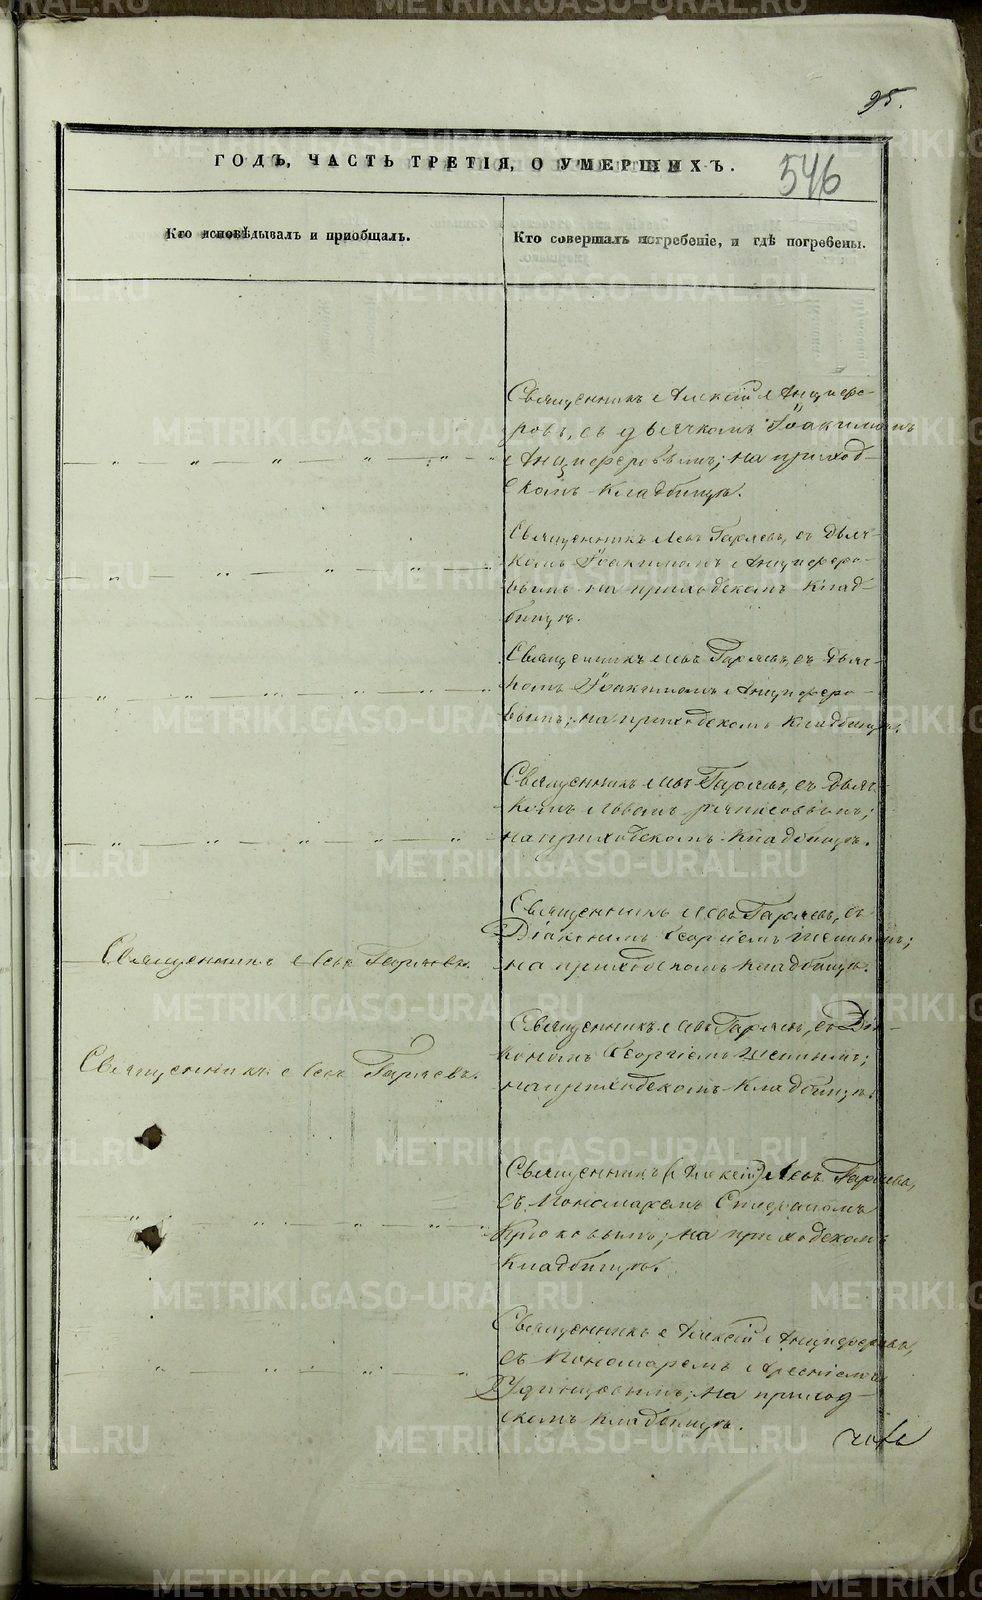 95.
ГОДЪ, ЧАСТЬ ТРЕТІЯ, О УМЕРШИХЪ.
546
Кто исповѣдывалъ и пріобщалъ.
Кто совершалъ погребеніе, и гдѣ погребены.
Священникъ Алексій Анцифе-
ровъ, съ дьячкомъ Іоакимомъ
Анциферовымъ; на приход-
скомъ кладбищѣ.
Священникъ Левъ Гаряевъ, съ дьяч-
комъ Іоакимомъ Анциферо-
вымъ на приходскомъ клад-
бищѣ.
Священникъ Левъ Гаряевъ, съ дьяч-
комъ Іоакимомъ Анциферо-
вымъ; на приходскомъ кладбищѣ.
Священникъ Левъ Гаряевъ, съ дьяч-
комъ
на приходскомъ кладбищѣ.
Священникъ Левъ Гаряевъ.
Священникъ Левъ Гаряевъ, съ
Діакономъ Георгіемъ
на приходскомъ кладбищѣ.
Священникъ Левъ Гаряевъ.
Священникъ Левъ Гаряевъ, съ Діа-
кономъ Георгіемъ
на приходскомъ кладбищѣ.
Священникъ (Алексій) Левъ Гаряевъ,
съ Пономаремъ Стефаномъ
Крюковымъ; на приходскомъ
кладбищѣ.
Священникъ Алексій Анциферовъ,
съ Пономаремъ Арсеніемъ
Удинцовымъ; на приход-
скомъ кладбищѣ.
METRIKI.GASO-URAL.RU